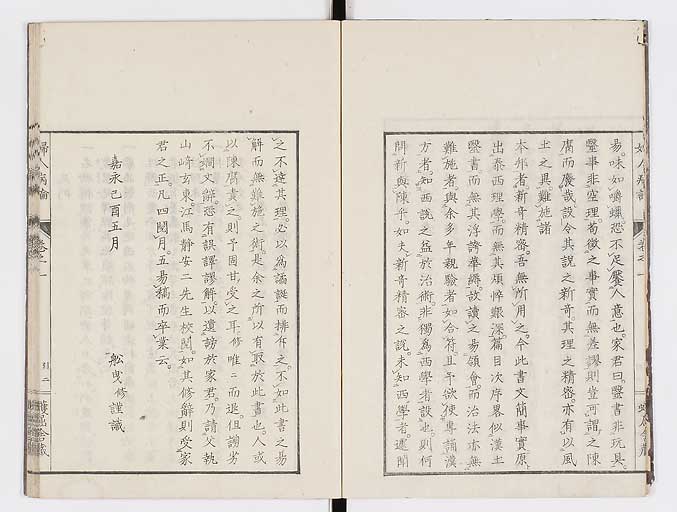 易。味如嚼蠟。恐不足饜人意也。家君曰。醫書非玩具。
醫事非空理。苟徵之事實而無差謬。則豈可謂之陳
腐而廢哉。設令其說之新奇。其理之精密。亦有以風
土之異難施諸
本邦者。新奇精密。吾無所用之。今此書文簡事實。原
出泰西理學。而無其煩悴艱深。篇目次序。畧似漢土
醫書。而無其浮誇華縟。故讀之易領會。而治法亦無
難施者。與余多年親驗者如合符。且予欲使專誦漢
方者。知西說之益於治術。非獨為西學者設也。則何
問新與陳乎。如夫新奇精密之說。未知西學者。遽聞
之不達其理。必以為譎誕而擯斥之。不如此書之易
解而無難施之術。是余之所以有取於此書也。人或
以陳腐責之。則予固甘受之耳。修唯唯而退。但謭劣
不嫺文辭。恐有誤譯謬解。以遺謗於家君。乃請父執
山崎玄東。江馬靜安二先生校閱。如其修辭則受家
君之正。凡四閱月。五易稿而卒業云。
嘉永己酉五月
舩曳修謹識
婦人病論
卷之一
引二